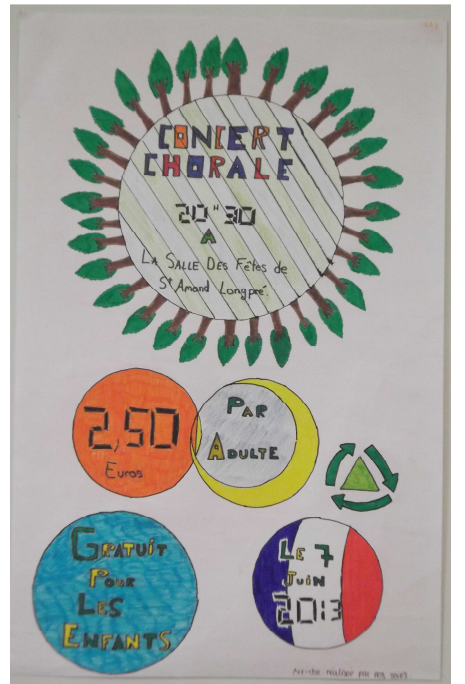 CONCERT
CHORALE
20 H 30
A
LA SALLE DES Fêtes de
St Amand Longpré.
2,50
Euros
PAR
ADULTE
GRATUIT
POUR
LES
ENFANTS
LE 7
JUIN
2013
réalisée par